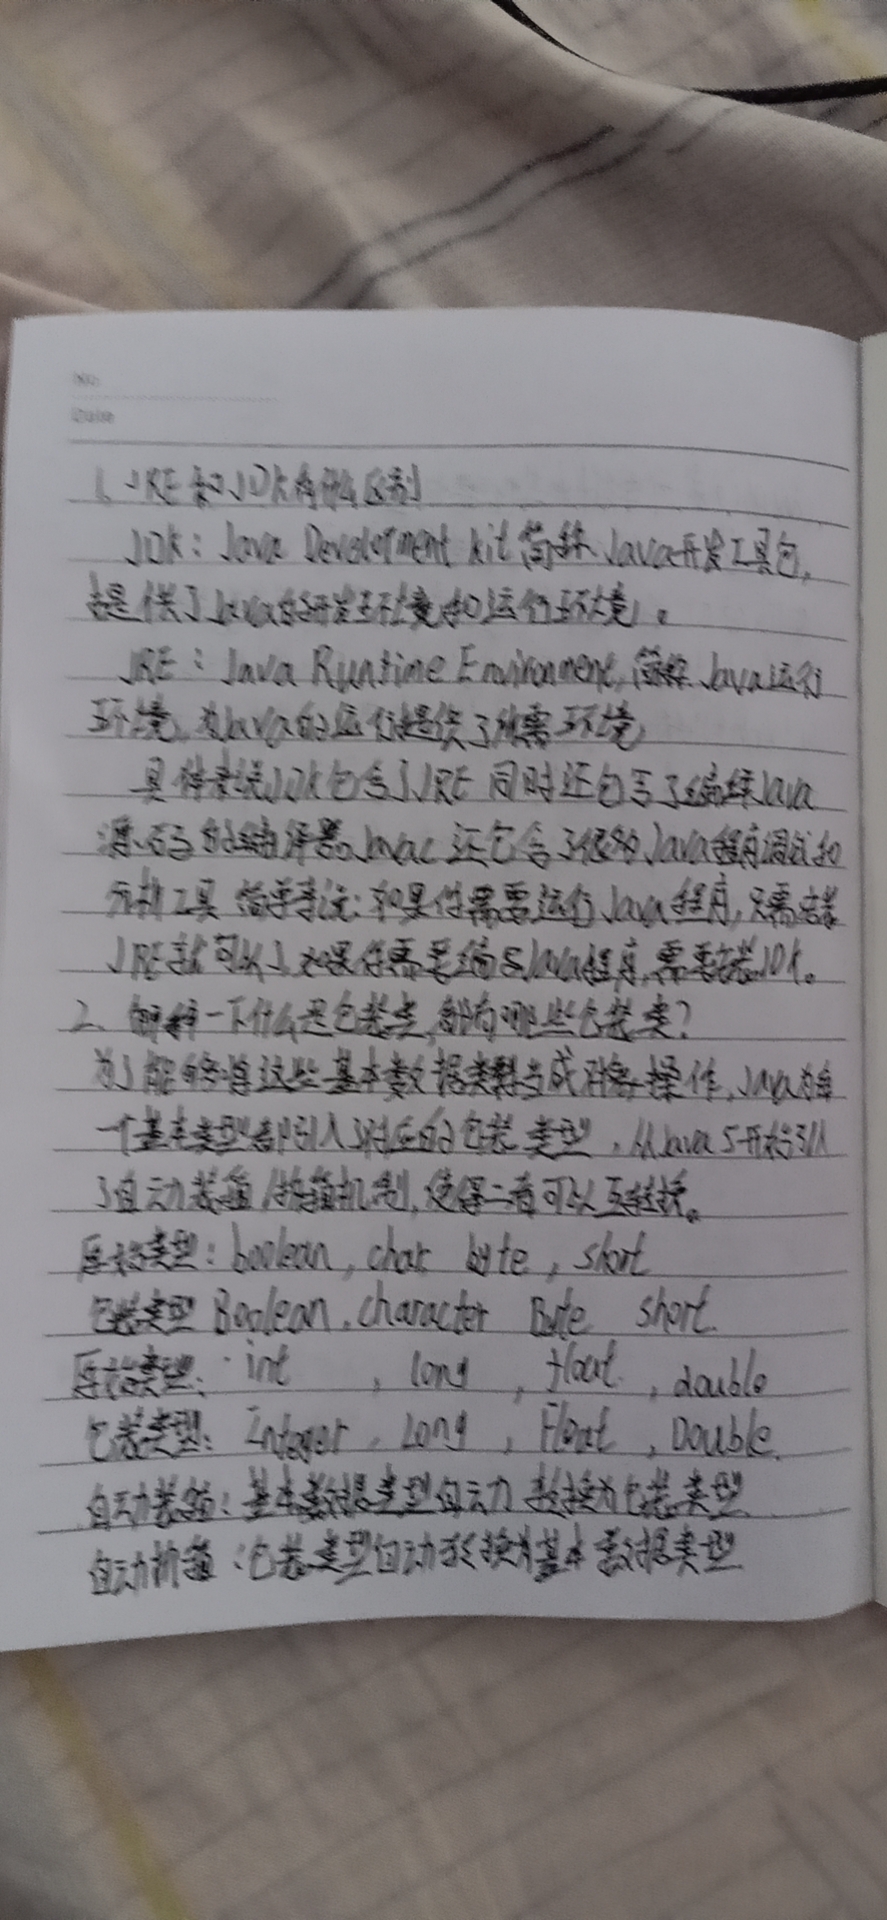 No.
Date
1. JRE和JDK有什么区别
JDK: Java Development kit 简称 Java开发工具包,
提供了Java的开发环境和运行环境。
JRE: Java Runtime Environment, 简称 Java运行
环境, 为Java的运行提供了所需环境
具体来说JDK包含了JRE 同时还包含了编译Java
源码的编译器Javac 还包含了很多Java程序调试和
分析工具 简单来说: 如果你需要运行Java程序, 只需安装
JRE就可以了 如果你需要编写Java程序, 需要安装JDK。
2. 解释一下什么是包装类, 都有哪些包装类?
为了能够将这些基本数据类型当成对象操作, Java为每
一个基本类型都引入了对应的包装类型, 从Java 5开始引入
了自动装箱/拆箱机制, 使得二者可以互转换。
原始类型: boolean, char byte, short
包装类型 Boolean, character Byte short
原始类型: int , long , float , double
包装类型: Integer , Long , Float , Double
自动装箱: 基本数据类型自动转换为包装类型
自动拆箱: 包装类型自动转换为基本数据类型